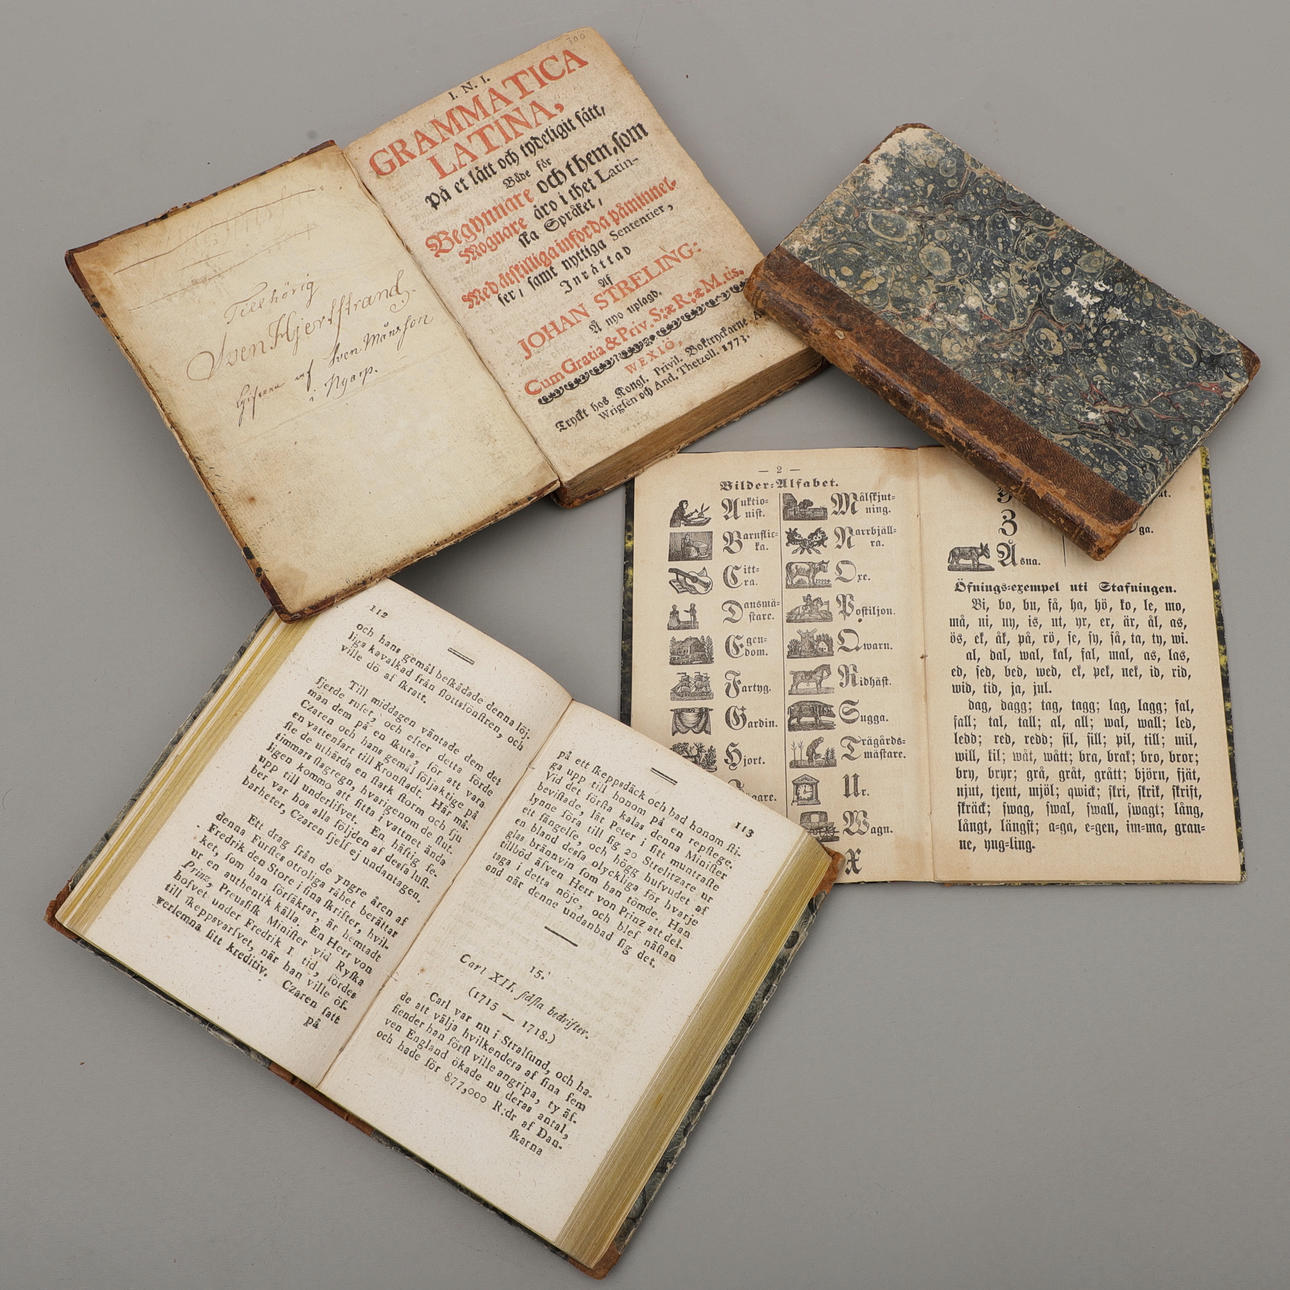 Tillhörig
Sven Hjertstrand.
af Sven Månsson
i Nyarp.
I. N. I.
GRAMMATICA
LATINA,
På et lätt och tydeligit sätt,
Både för
Begynnare och them, som
Mognare äro i thet Latin-
ska Språket,
Med åtskilliga införda påminnel-
ser, samt nyttiga Sententier,
Inrättad
Af
JOHAN STRELING:
Å nyo uplagd.
Cum Gratia & Priv. S:æ R:æ M:tis.
WEXIÖ,
Tryckt hos Kongl. Privil. Boktryckarne
Wrigsen och And. Thetzell. 1773.
— 2 —
Bilder-Alfabet.
Auktio-
nist.
Barnflic-
ka.
Citt-
ra.
Dansmä-
stare.
Egen-
dom.
Fartyg.
Gardin.
Hjort.
Målskjut-
ning.
Narrbjäll-
ra.
Oxe.
Postiljon.
Qwarn.
Ridhäst.
Sugga.
Trägårds-
mästare.
Ur.
Wagn.
X
Z
Åsna.
Öfnings-exempel uti Stafningen.
Bi, bo, bu, få, ha, hö, ko, le, mo,
må, ni, ny, is, ut, yr, er, är, ål, as,
ös, ek, åk, på, rö, se, sy, så, ta, ty, wi.
al, dal, wal, kal, fal, mal, as, las,
ed, sed, bed, wed, ek, pek, nek, id, rid,
wid, tid, ja, jul.
dag, dagg; tag, tagg; lag, lagg; fal,
fall; tal, tall; al, all; wal, wall; led,
ledd; red, redd; sil, sill; pil, till; mil,
will, til; wåt, wått; bra, brak; bro, bror;
bry, bryr; grå, gråt, grått; björn, fjät,
njut, tjent, mjöl; qwick; skri, skrik, skrift,
skräck; swag, swal, swall, swagt; lång,
långt, längst; a-ga, e-gen, im-ma, gran-
ne, yng-ling.
112
och hans gemål beskådade denna löj-
liga kavalkad från slottsfönstren, och
ville dö af skratt.
Till middagen väntade dem det
fjerde ruset, och efter detta förde
man dem på en skuta, för att vara
Czaren och hans gemål följaktige på
en vattenfart till Kronstadt. Här må-
ste de uthärda en stark storm och sju
timmars slagregn, hvarigenom de slut-
ligen kommo att sitta i vattnet ända
upp till underlifvet. En häftig fe-
ber var hos alla följden af dessa lust-
barheter, Czaren sjelf ej undantagen.
Ett drag från de yngre åren af
denna Furstes otroliga råhet berättar
Fredrik den Store i sina skrifter, hvil-
ket, som han försäkrar, är hemtadt
ur en authentik källa. En Herr von
Prinz, Preussisk Minister vid Ryska
hofvet under Fredrik I. tid, fördes
till skeppsvarfvet, när han ville öf-
verlemna sitt kreditiv. Czaren satt
på
113
på ett skeppsdäck och bad honom sti-
ga upp till honom på en repstege.
Vid det första kalas, denna Minister
bevistade, lät Peter i sitt muntraste
lynne föra till sig 20 Strelitzare ur
ett fängelse, och högg hufvudet af
en bland dessa olyckliga för hvarje
glas brännvin som han tömde. Han
tillböd äfven Herr von Prinz att del-
taga i detta nöje, och blef nästan
ond när denne undanbad sig det.
15.
Carl XII. sidsta bedrifter.
(1715 — 1718.)
Carl var nu i Stralsund, och ha-
de att välja hvilkendera af sina fem
fiender han först ville angripa, ty äf-
ven England ökade nu deras antal,
och hade för 877,000 R:dr af Dan-
skarna